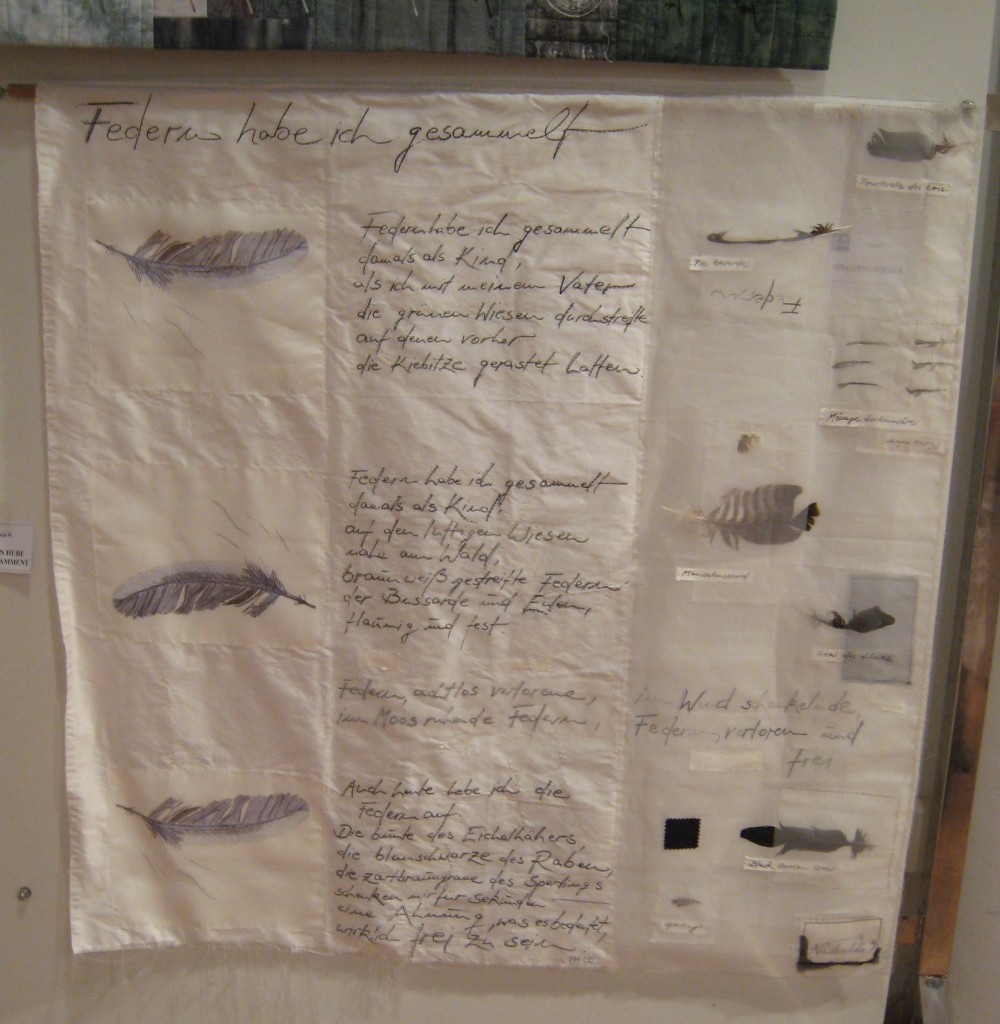 Federn habe ich gesammelt
Federn habe ich gesammelt
damals als Kind,
als ich mit meinem Vater
die grünen Wiesen durchstreifte
auf denen vorher
die Kiebitze gerastet hatten.
Federn habe ich gesammelt
damals als Kind,
auf den luftigen Wiesen
nahe am Wald,
braun weiß gestreifte Federn
der Bussarde und Eulen,
flaumig und fest.
Federn, achtlos verlorene,
im Moos ruhende Federn,
im Wind schaukelnde
Federn, verloren und
frei
Auch heute hebe ich die
Federn auf.
Die bunte des Eichelhähers
die blauschwarze des Raben,
die zartbraungraue des Sperlings
schenken mir für Sekunden
eine Ahnung, was es bedeutet,
wirklich frei zu sein.
Federn
Mäusebussard
N HUBE
AMMENT